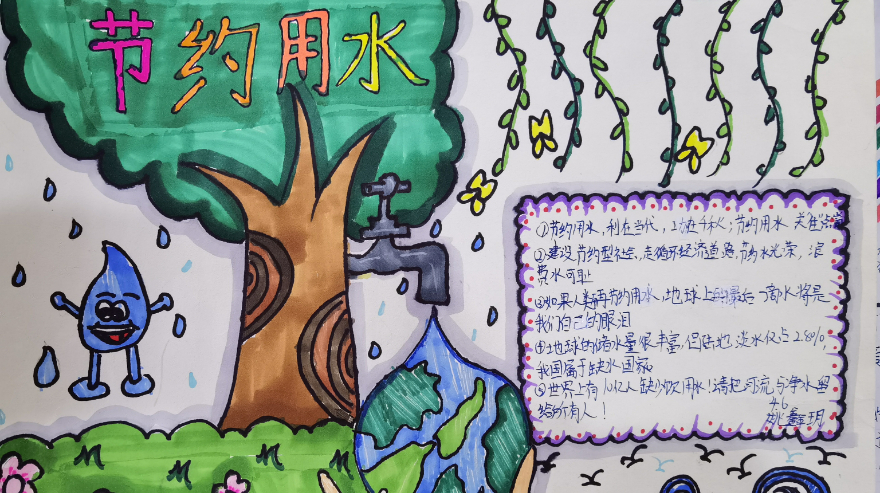 节约用水
①节约用水,利在当代,功在千秋;节约用水 关住点滴
②建设节约型社会,走循环经济道路,节约水光荣,浪
费水可耻
③如果人类再节约用水,地球上的最后一滴水将是
我们自己的眼泪
④地球的储水量很丰富,但陆地淡水仅占2.8%,
我国属于缺水国家
⑤世界上有10亿人缺少饮用水!请把河流与净水留
给所有人!
46